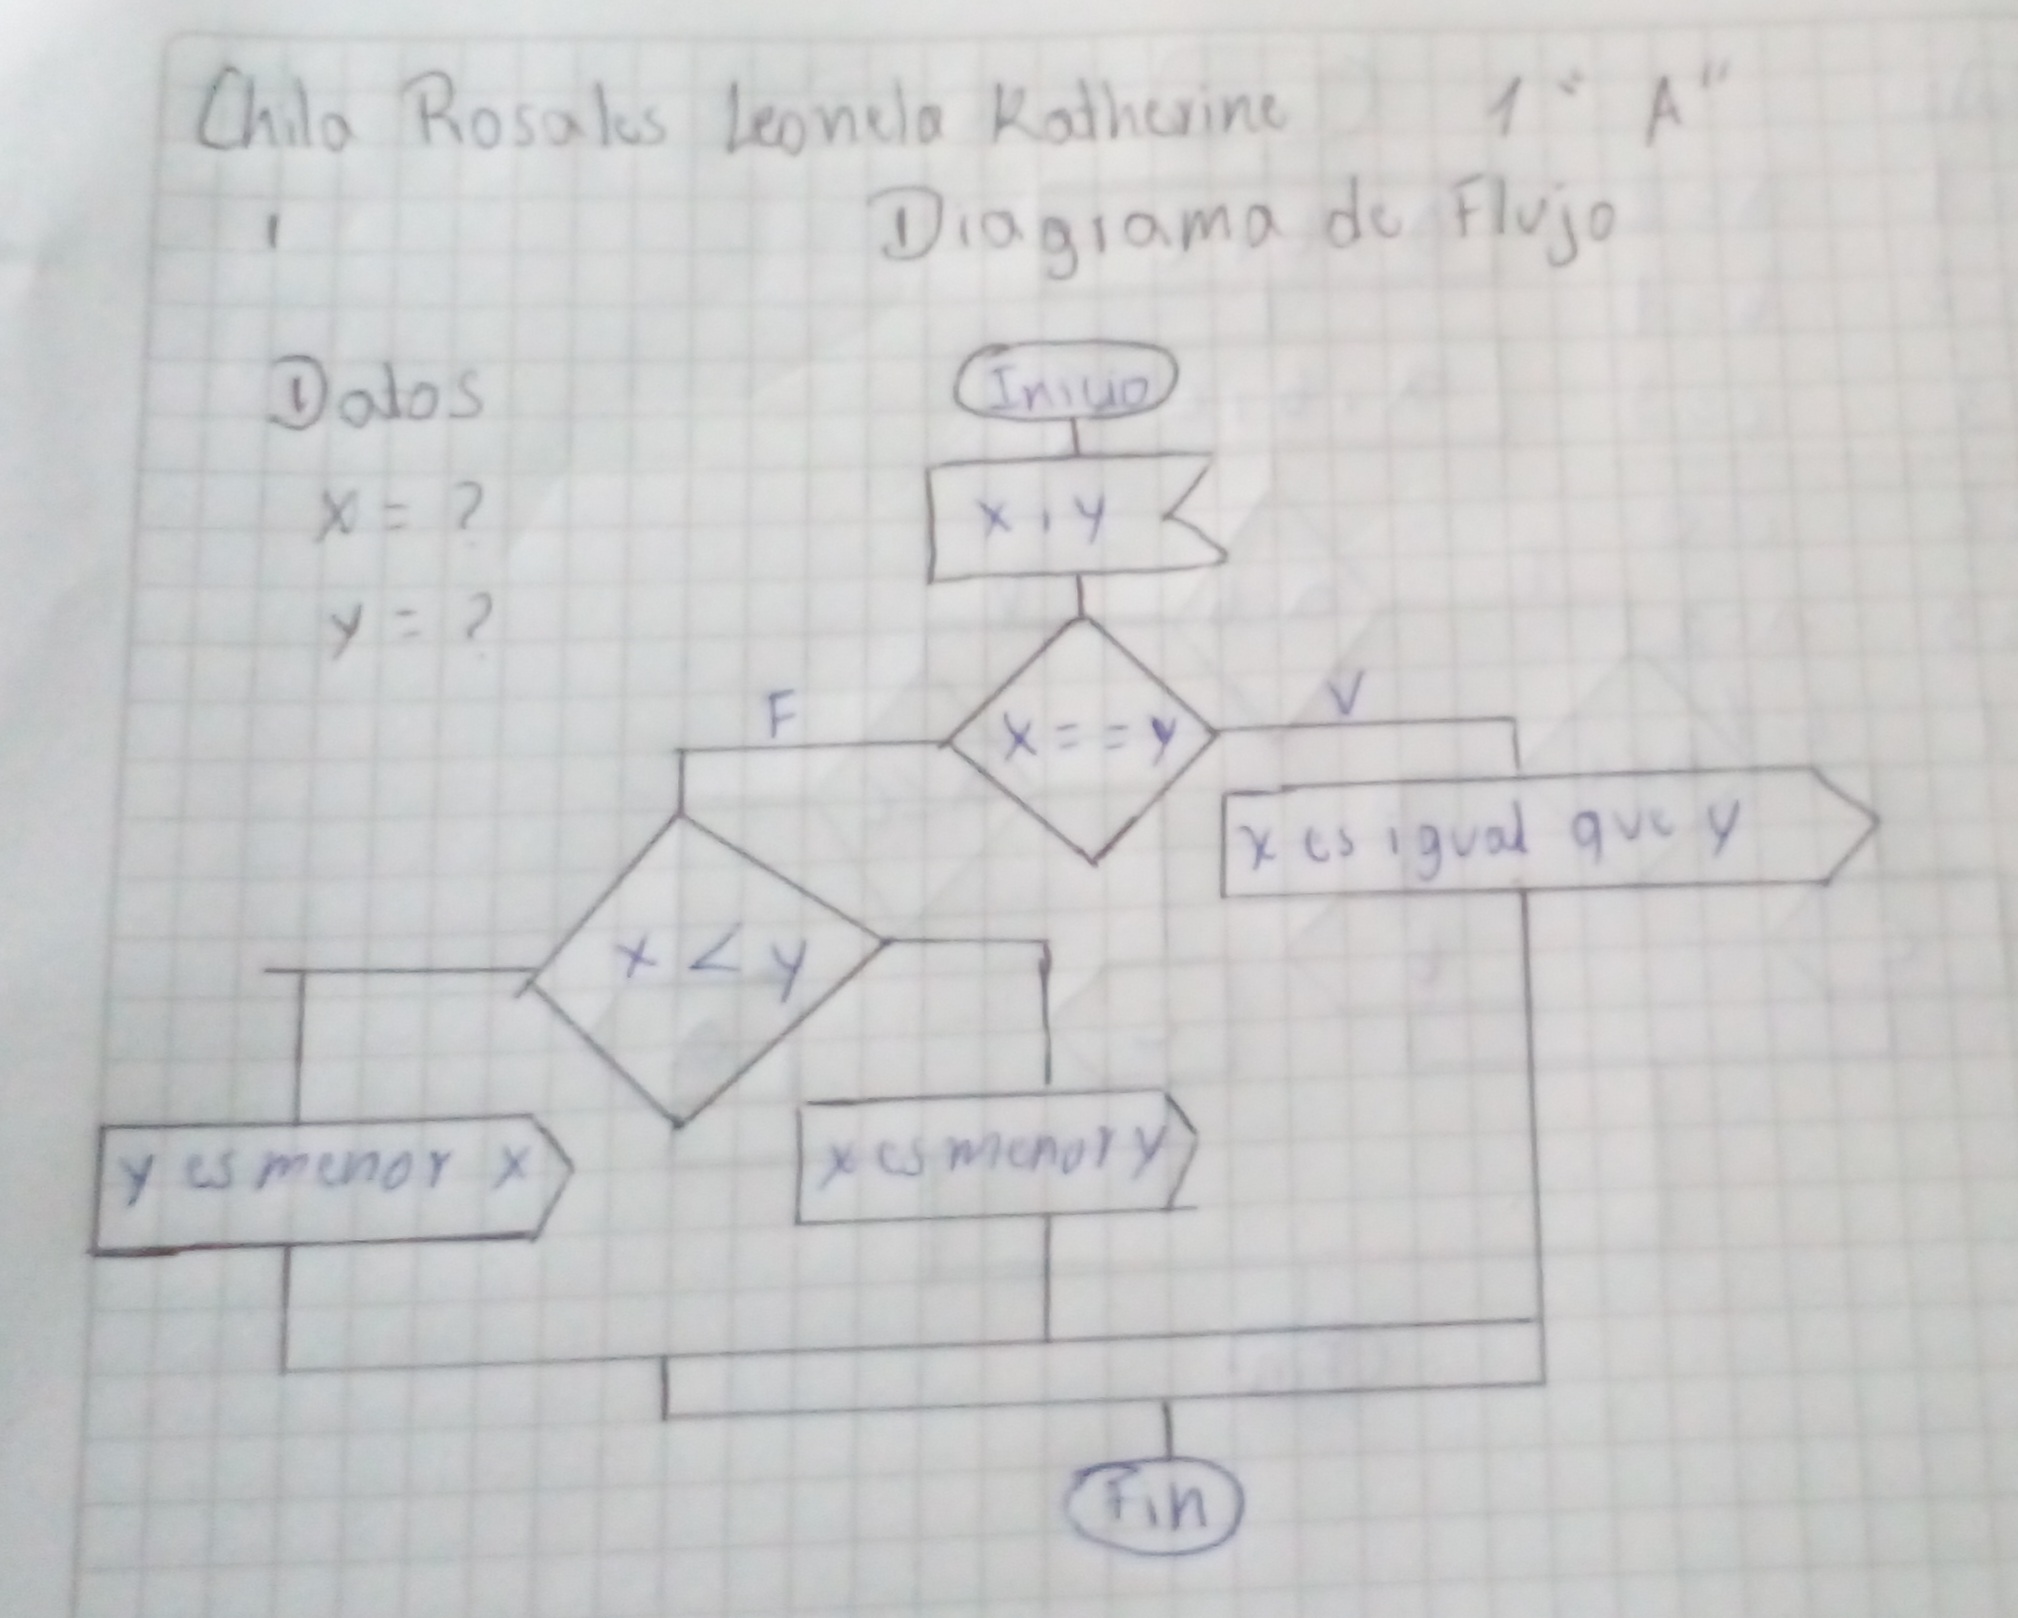 Chila Rosales Leonela Katherine 1 "A"
Diagrama de Flujo
Datos
x = ?
y = ?
Inicio
x , y
F
x == y
V
x es igual que y
x < y
y es menor x
x es menor y
Fin